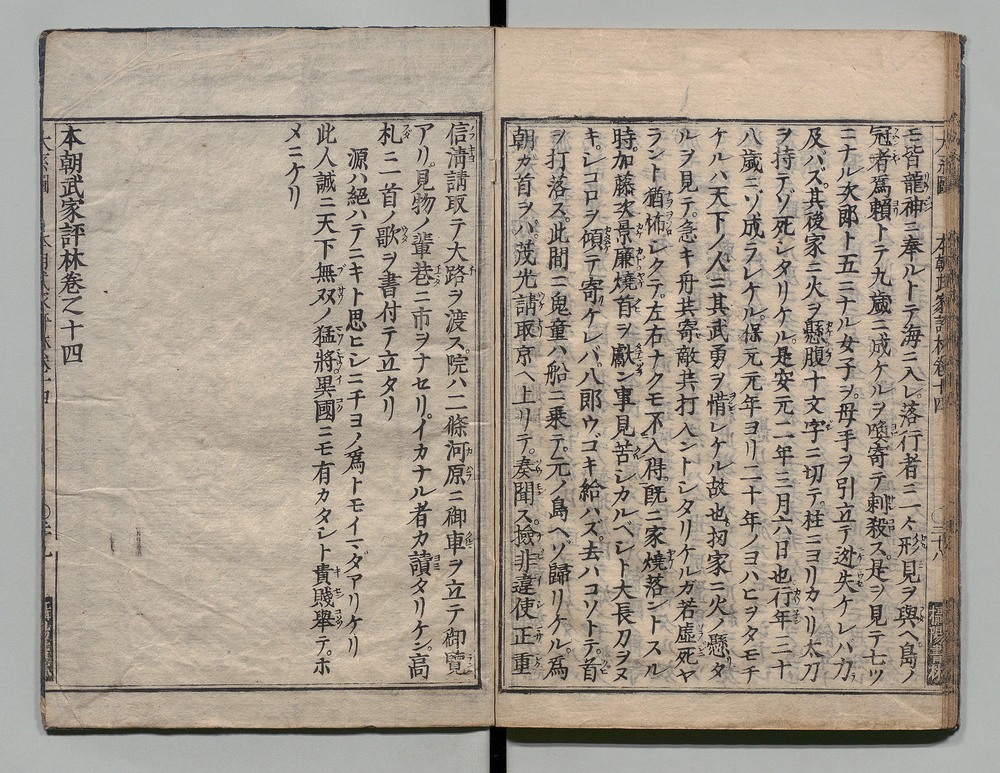 モ皆龍神ニ奉ルトテ海ニ入レ落行者ニ一々形見ヲ與ヘ島ノ
冠者爲頼トテ九歳ニ成ケルヲ喚寄テ刺殺ス是ヲ見テ七ツ
ニナル次郎ト五ニナル女子ヲ母手ヲ引立テ迯失ケレハ力
及ハズ其後家ニ火ヲ懸腹十文字ニ切テ柱ニヨリカヽリ太刀
ヲ持テゾ死シタリケル是安元二年三月六日也行年二十
八歳ニゾ成ラレケル保元元年ヨリ二十年ノヨハヒヲタモチ
ケルハ天下ノ人ニ其武勇ヲ惜レケル故也扨家ニ火ノ懸タ
ルヲ見テ急キ舟共寄敵共打入ントシタリケルカ若虚死ヤ
ラント猶怖シクテ左右ナクモ不入得既ニ家燒落ントスル
時加藤次景廉燒首ヲ獻ン事見苦シカルベシト大長刀ヲヌ
キシコロヲ傾テ寄ケレバ八郎ウゴキ給ハズ去ハコソトテ首
ヲ打落ス此間ニ鬼童ハ船ニ乗テ元ノ島ヘソ歸リケル爲
朝カ首ヲハ茂光請取京ヘ上リテ奏聞ス撿非違使正重
信淸請取テ大路ヲ渡ス院ハ二條河原ニ御車ヲ立テ御覽
アリ見物ノ輩巷ニ市ヲナセリイカナル者カ讀タリケン高
札ニ一首ノ歌ヲ書付テ立タリ
源ハ絕ハテニキト思ヒシニチヨノ爲トモイマダアリケリ
此人誠ニ天下無双ノ猛將異國ニモ有カタシト貴賤擧テホ
メニケリ
本朝武家評林卷之十四